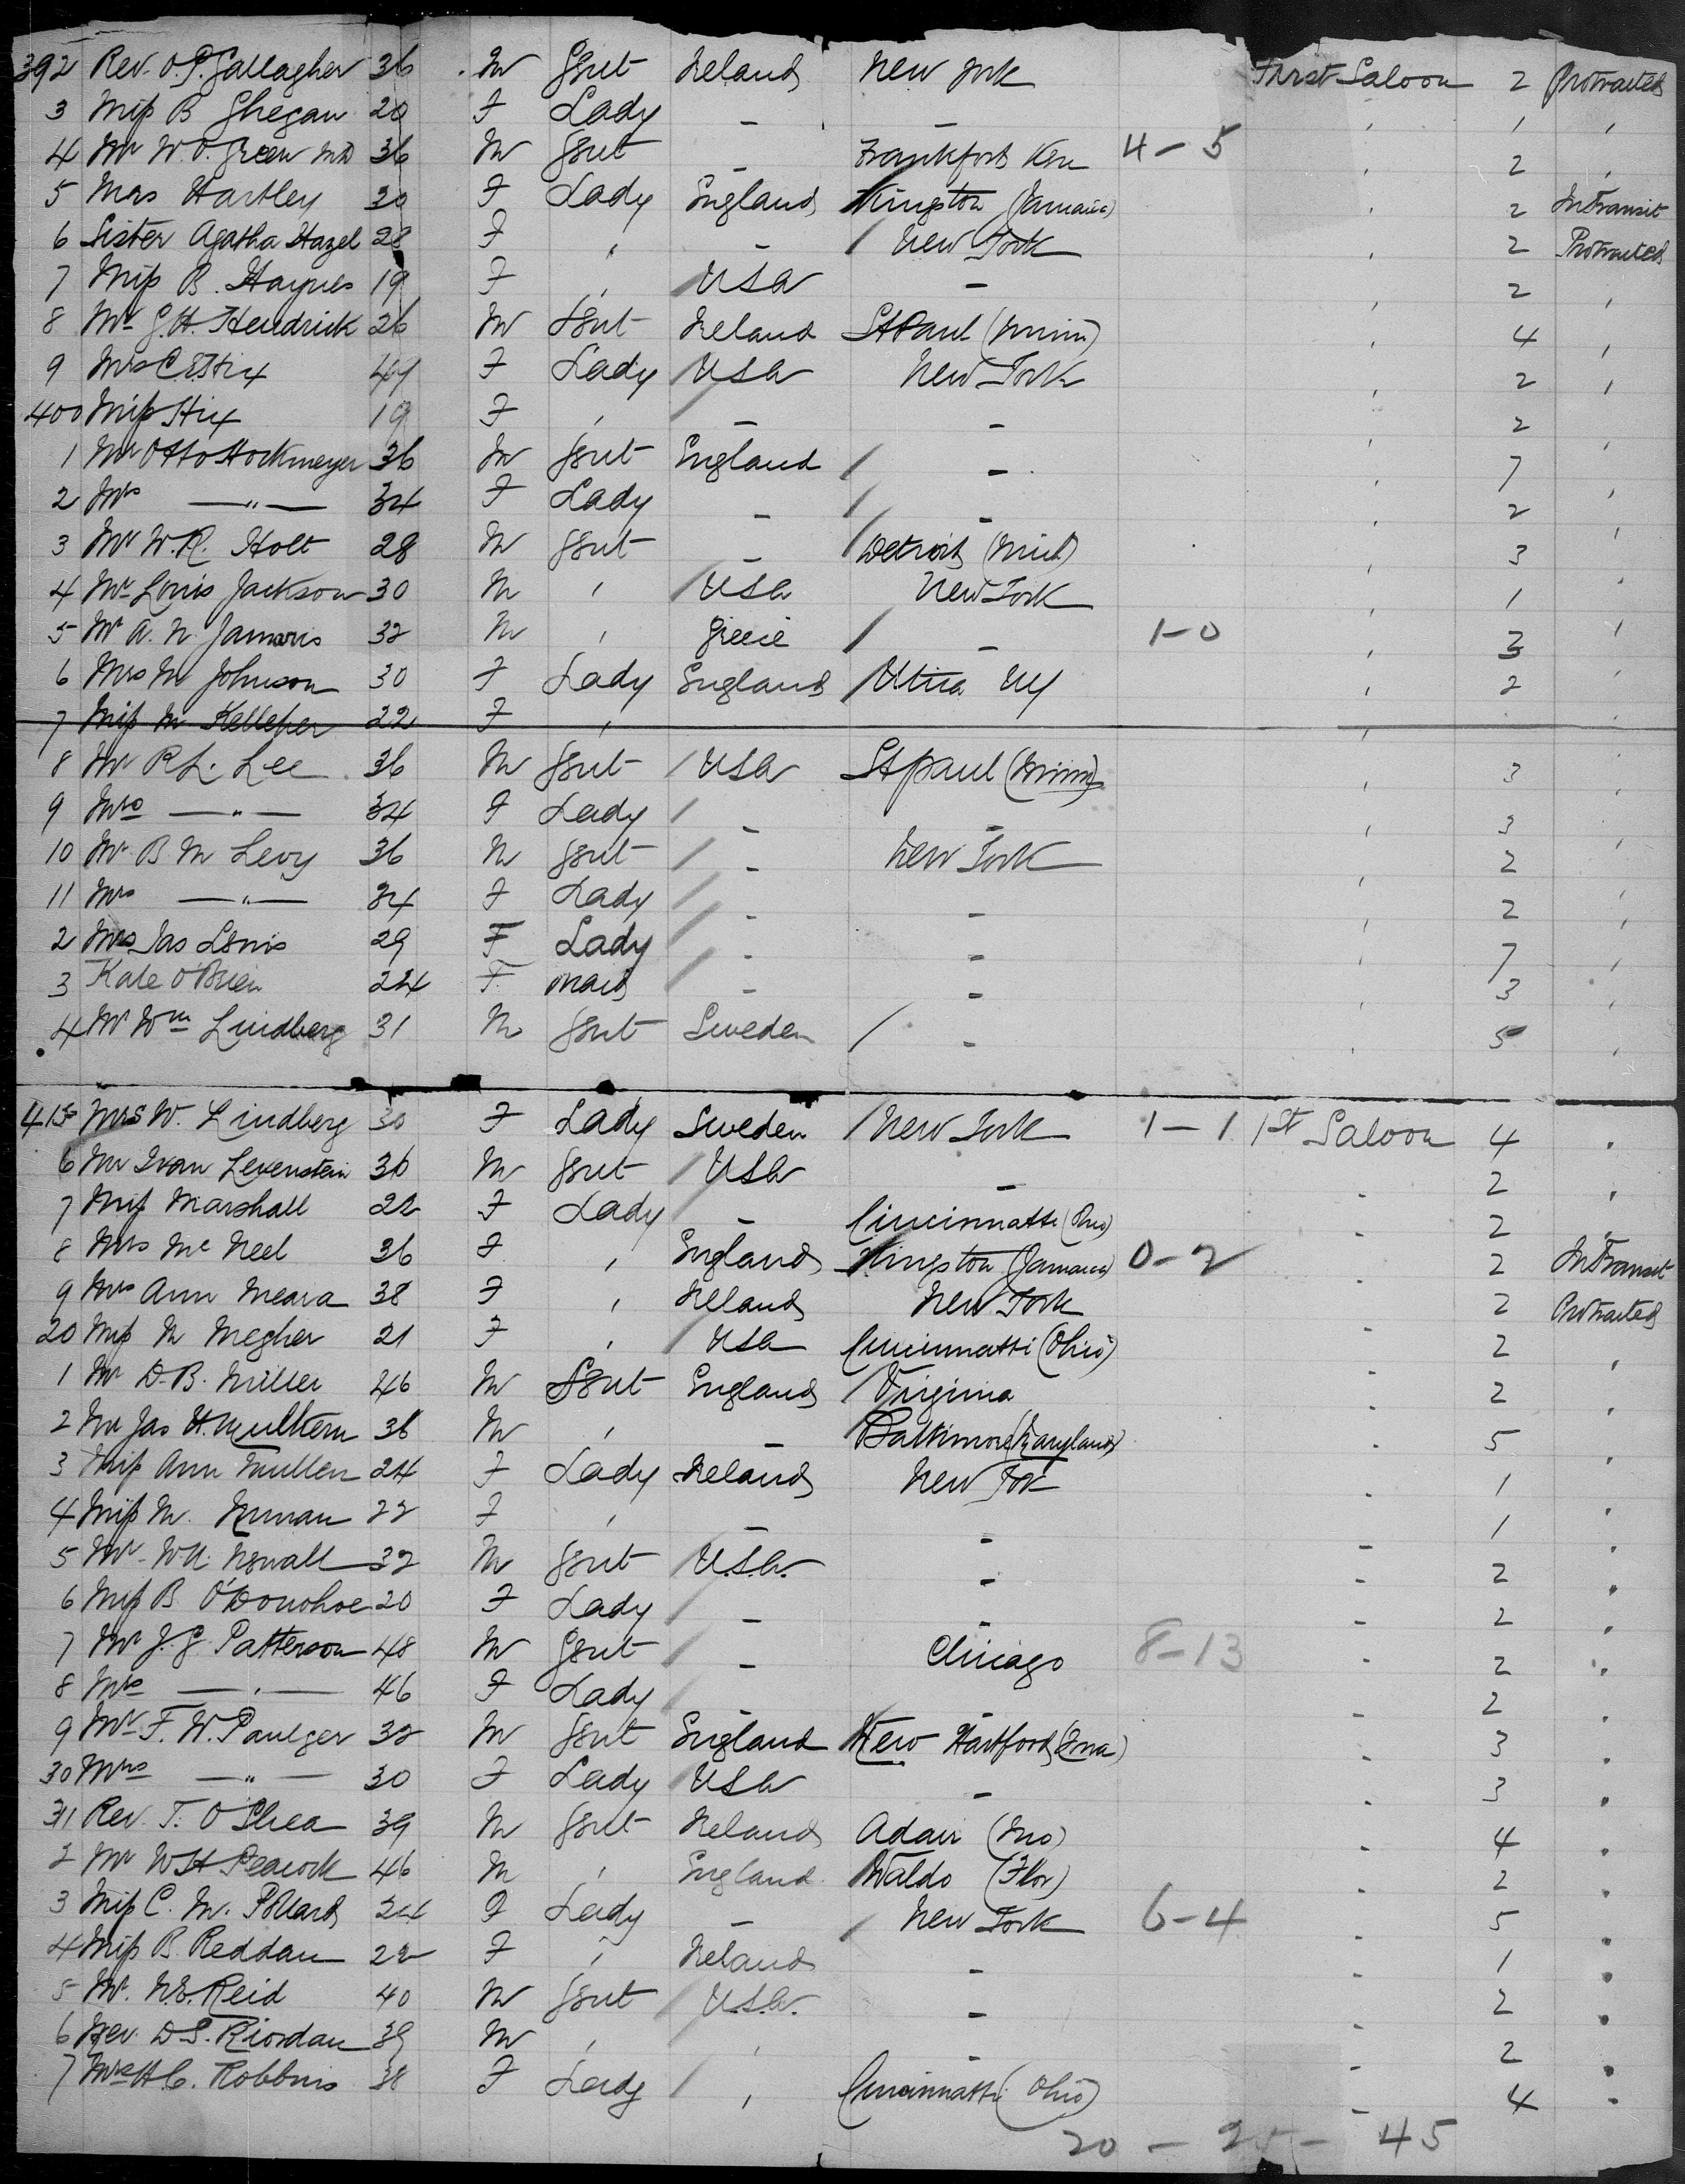 392 Rev. O.P. Gallagher 36 M Gent Ireland New York First Saloon 2 Protracted
3 Miss B Ghegan 20 F Lady - - ' 1 '
4 Mr W.O. Green MD 36 M Gent - Frankfort Ken 4-5 ' 2 '
5 Mrs Hartley 30 F Lady England Kingston (Jamaica) ' 2 In Transit
6 Sister Agatha Hazel 28 F " - New York ' 2 Protracted
7 Miss B. Haynes 19 F ' USA - ' 2 '
8 Mr G.H. Hendrick 26 M Gent Ireland St Paul (Minn) ' 4 '
9 Mrs C.E. Hix 49 F Lady USA New York ' 2 '
400 Miss Hix 19 F ' - - ' 2 '
1 Mr Otto Hockmeyer 36 M Gent England - ' 7 '
2 Mrs —"— 34 F Lady - - ' 2 '
3 Mr W.R. Holt 28 M Gent - Detroit (Mich) ' 3 '
4 Mr Louis Jackson 30 M ' USA New York ' 1 '
5 Mr A. N. Jamaris 32 M ' Greece - 1-0 ' 3 '
6 Mrs M Johnson 30 F Lady England Utica NY ' 2 '
7 Miss M Kelleher 22 F '
8 Mr R L. Lee 36 M Gent USA St Paul (Minn) ' 3 '
9 Mrs —"— 34 F Lady - - ' 3 '
10 Mr B M Levy 36 M Gent - New York 2 '
11 Mrs —"— 34 F Lady - - ' 2 '
2 Mrs Jas Lewis 29 F Lady - - ' 7 '
3 Kate O'Brien 24 F. Maid - - 3 '
4 Mr Wm Lindberg 31 M Gent Sweden - ' 5 '
415 Mrs W. Lindberg 30 F Lady Sweden New York 1-1 1st Saloon 4 "
6 Mr Ivan Levenstein 36 M Gent USA - - 2 "
7 Miss Marshall 22 F Lady - Cincinnatti (Ohio) - 2
8 Mrs Mc Neel 36 F ' England Kingston (Jamaica) 0-2 - 2 In Transit
9 Mrs Ann Meara 38 F ' Ireland New York 2 Protracted
20 Miss M Megher 21 F ' USA Cincinnatti (Ohio) - 2 "
1 Mr D.B. Miller 46 M Gent England Virginia - 2 "
2 Mr Jas H. Mulhern 36 M ' - Baltimore (Maryland) - 5 "
3 Miss Ann Mullen 24 F Lady Ireland New York - 1 "
4 Miss M. Nunan 22 F ' - - 1 "
5 Mr W.A. Newall 32 M Gent U.S.A. - - 2 "
6 Miss B O'Donohoe 20 F Lady - - 2 "
7 Mr J.G. Patterson 48 M Gent - Chicago 8-13 - 2 "
8 Mrs —"— 46 F Lady - - 2 "
9 Mr F. W. Paulger 32 M Gent England New Hartford - 3 "
30 Mrs —"— 30 F Lady USA - - 3 "
31 Rev. T. O'Shea 39 M Gent Ireland Adair - 4 "
2 Mr W H Peacock 46 M ' England Waldo (Flor) - 2 "
3 Miss C. M. Pollard 24 F Lady - New York 6-4 5 "
4 Miss B. Reddan 22 F " Ireland - - 1 "
5 Mr. N.E. Reid 40 M Gent U.S.A. - 2 "
6 Rev. D S. Riordan 39 M ' ' - - 2 "
7 Mrs H C. Robbins 38 F Lady ' Cincinnatti (Ohio) - 4 "
20 - - 45